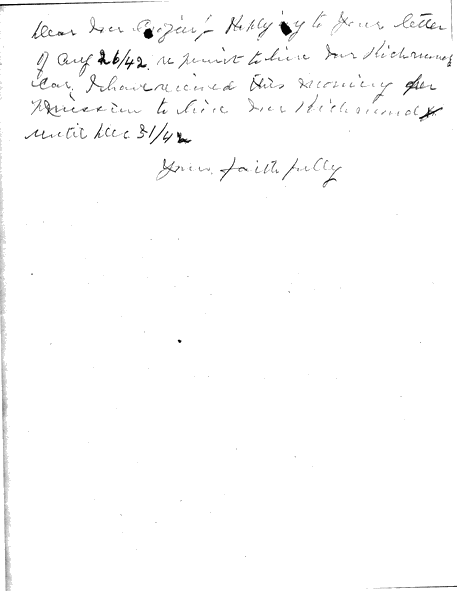 Dear Mr Replying to your letter
of Aug 26/42 re permit to hire Mr Richmonds
car. I have received this morning per
mission to hire Mr Richmonds
until Dec 31/42
Yours faithfully